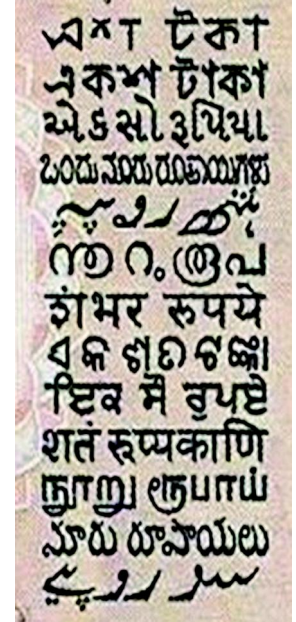 এশ টকা
একশ টাকা
એકસો રૂપિયા
ಒಂದುನೂರು ರೂಪಾಯಿಗಳು
നൂറു രൂപ
शंभर रुपये
ଏକ ଶତ ଟଙ୍କା
ਇਕ ਸੌ ਰੁਪਏ
शतं रुप्यकाणि
நூறு ரூபாய்
నూరు రూపాయలు
سو روپے